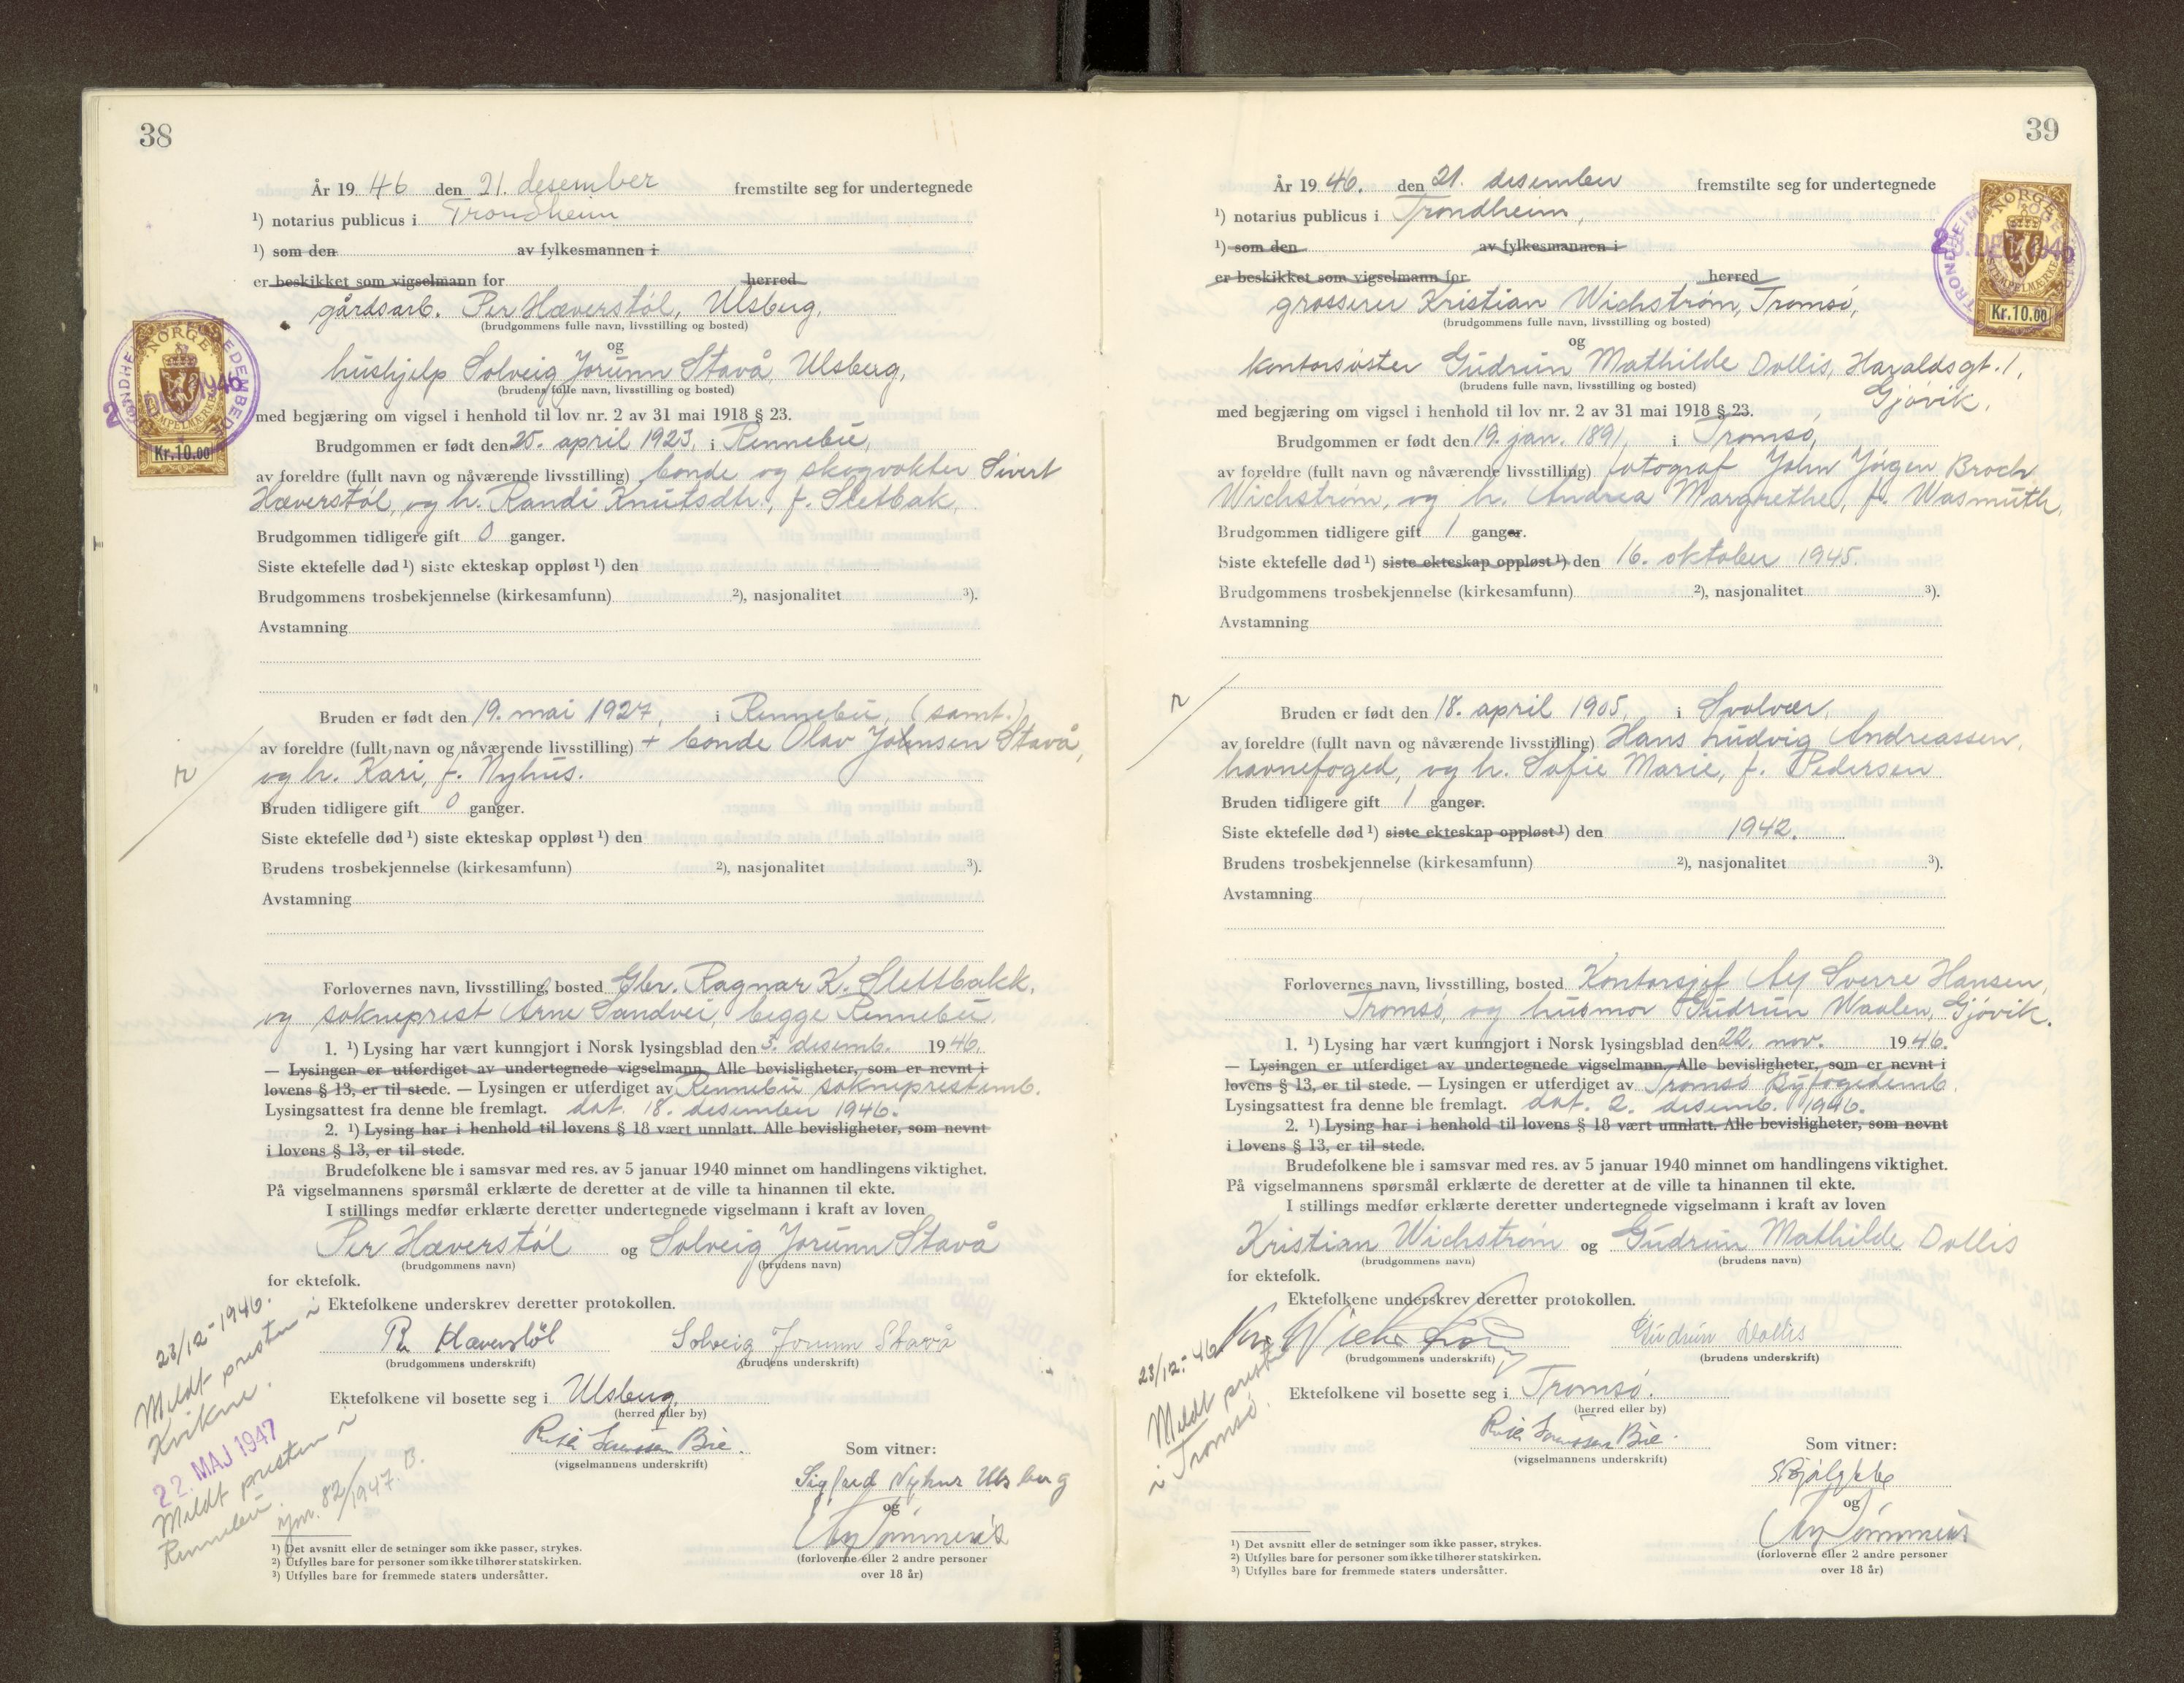 38
År 19 46 den 21. desember fremstilte seg for undertegnede
¹) notarius publicus i Trondheim
¹) som den av fylkesmannen i
er beskikket som vigselmann for herred
gårdsarb. Per Hæverstøl, Ulsberg,
(brudgommens fulle navn, livsstilling og bosted)
og
hushjelp Solveig Jorunn Stavå, Ulsberg,
(brudens fulle navn, livsstilling og bosted)
med begjæring om vigsel i henhold til lov nr. 2 av 31 mai 1918 § 23.
Brudgommen er født den 25. april 1923, i Rennebu,
av foreldre (fullt navn og nåværende livsstilling) bonde og skogvokter Sivert
Hæverstøl, og h. Randi Knutsdtr., f. Sletbak,
Brudgommen tidligere gift 0 ganger.
Siste ektefelle død ¹) siste ekteskap oppløst ¹) den
Brudgommens trosbekjennelse (kirkesamfunn) ²), nasjonalitet ³).
Avstamning
Bruden er født den 19. mai 1927, i Rennebu, (samt.)
av foreldre (fullt navn og nåværende livsstilling) + bonde Olav Johnsen Stavå,
og h. Kari, f. Nyhus.
Bruden tidligere gift 0 ganger.
Siste ektefelle død ¹) siste ekteskap oppløst ¹) den
Brudens trosbekjennelse (kirkesamfunn) ²), nasjonalitet ³).
Avstamning
Forlovernes navn, livsstilling, bosted Gbr. Ragnar K. Slettbakk,
og sokneprest Arne Sandvei, begge Rennebu,
1. ¹) Lysing har vært kunngjort i Norsk lysingsblad den 3. desemb. 19 46.
— Lysingen er utferdiget av undertegnede vigselmann. Alle bevisligheter, som er nevnt i
lovens § 13, er til stede. — Lysingen er utferdiget av Rennebu sokneprestemb.
Lysingsattest fra denne ble fremlagt. dat. 18. desember 1946.
2. ¹) Lysing har i henhold til lovens § 18 vært unnlatt. Alle bevisligheter, som nevnt
i lovens § 13, er til stede.
Brudefolkene ble i samsvar med res. av 5 januar 1940 minnet om handlingens viktighet.
På vigselmannens spørsmål erklærte de deretter at de ville ta hinannen til ekte.
I stillings medfør erklærte deretter undertegnede vigselmann i kraft av loven
Per Hæverstøl og Solveig Jorunn Stavå
(brudgommens navn) (brudens navn)
for ektefolk.
Ektefolkene underskrev deretter protokollen.
Per Hæverstøl Solveig Jorunn Stavå
(brudgommens underskrift) (brudens underskrift)
Ektefolkene vil bosette seg i Ulsberg,
(herred eller by)
(vigselmannens underskrift)
Som vitner:
Sigfred Nyhus Ulsberg
og
(forloverne eller 2 andre personer
over 18 år)
23/12-1946.
Meldt presten i
Kvikne.
22. MAJ 1947
Meldt presten i
Rennebu.
jnr. 82/1947. B.
¹) Det avsnitt eller de setninger som ikke passer, strykes.
²) Utfylles bare for personer som ikke tilhører statskirken.
³) Utfylles bare for fremmede staters undersåtter.
NORGE
STEMPELMERKE
Kr.10.00
39
År 19 46. den 21. desember fremstilte seg for undertegnede
¹) notarius publicus i Trondheim,
¹) som den av fylkesmannen i
er beskikket som vigselmann for herred
grosserer Kristian Wichstrøm, Tromsø,
(brudgommens fulle navn, livsstilling og bosted)
og
kontorsøster Gudrun Mathilde Dollis, Haraldsgt. 1,
(brudens fulle navn, livsstilling og bosted)
Gjøvik,
med begjæring om vigsel i henhold til lov nr. 2 av 31 mai 1918 § 23.
Brudgommen er født den 19. jan. 1891, i Tromsø,
av foreldre (fullt navn og nåværende livsstilling) fotograf John Jørgen Broch
Wichstrøm, og h. Andrea Margrethe, f. Wasmuth,
Brudgommen tidligere gift 1 ganger.
Siste ektefelle død ¹) siste ekteskap oppløst ¹) den 16. oktober 1945.
Brudgommens trosbekjennelse (kirkesamfunn) ²), nasjonalitet ³).
Avstamning
Bruden er født den 18. april 1905, i Svolvær,
av foreldre (fullt navn og nåværende livsstilling) Hans Ludvig Andreassen,
havnefoged, og h. Sofie Marie, f. Pedersen
Bruden tidligere gift 1 ganger.
Siste ektefelle død ¹) siste ekteskap oppløst ¹) den 1942.
Brudens trosbekjennelse (kirkesamfunn) ²), nasjonalitet ³).
Avstamning
Forlovernes navn, livsstilling, bosted Kontorsjef Sverre Hansen,
Tromsø, og husmor Gudrun Waalen, Gjøvik.
1. ¹) Lysing har vært kunngjort i Norsk lysingsblad den 22. nov. 19 46.
— Lysingen er utferdiget av undertegnede vigselmann. Alle bevisligheter, som er nevnt i
lovens § 13, er til stede. — Lysingen er utferdiget av Tromsø Byfogedemb.
Lysingsattest fra denne ble fremlagt. dat. 2. desemb. 1946.
2. ¹) Lysing har i henhold til lovens § 18 vært unnlatt. Alle bevisligheter, som nevnt
i lovens § 13, er til stede.
Brudefolkene ble i samsvar med res. av 5 januar 1940 minnet om handlingens viktighet.
På vigselmannens spørsmål erklærte de deretter at de ville ta hinannen til ekte.
I stillings medfør erklærte deretter undertegnede vigselmann i kraft av loven
Kristian Wichstrøm og Gudrun Mathilde Dollis
(brudgommens navn) (brudens navn)
for ektefolk.
Ektefolkene underskrev deretter protokollen.
Gudrun Dollis
(brudgommens underskrift) (brudens underskrift)
Ektefolkene vil bosette seg i Tromsø.
(herred eller by)
(vigselmannens underskrift)
Som vitner:
og
(forloverne eller 2 andre personer
over 18 år)
23/12-46
Meldt presten
i Tromsø.
¹) Det avsnitt eller de setninger som ikke passer, strykes.
²) Utfylles bare for personer som ikke tilhører statskirken.
³) Utfylles bare for fremmede staters undersåtter.
NORGE
STEMPELMERKE
Kr.10.00